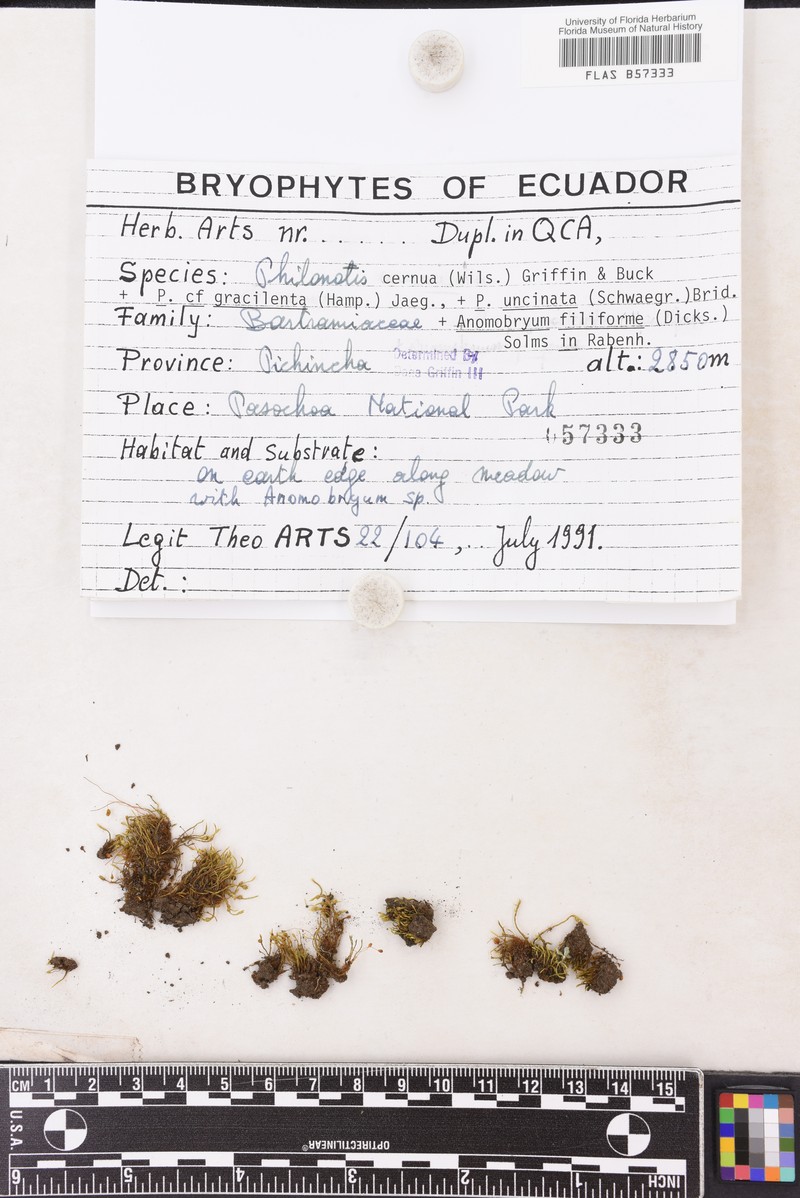 University of Florida Herbarium
Florida Museum of Natural History
FLAS B57333
BRYOPHYTES OF ECUADOR
Herb. Arts nr. . . . . . . Dupl. in QCA,
Species: Philonotis cernua (Wils.) Griffin & Buck
+ P. cf gracilenta (Hamp.) Jaeg., + P. uncinata (Schwaegr.)Brid.
Family: Bartramiaceae + Anomobryum filiforme (Dicks.)
Solms in Rabenh.
Province: Pichincha Determined By alt.: 2850m
Dana Griffin III
Place: Pasochoa National Park
057333
Habitat and substrate:
on earth edge along meadow
with Anomobryum sp.
Legit Theo ARTS 22/104, .. July 1991.
Det. :
CM 1 2 3 4 5 6 7 8 9 10 11 12 13 14 15
U.S.A.
OPTIRECTILINEAR®
6 5 4 3 2 1 INCH